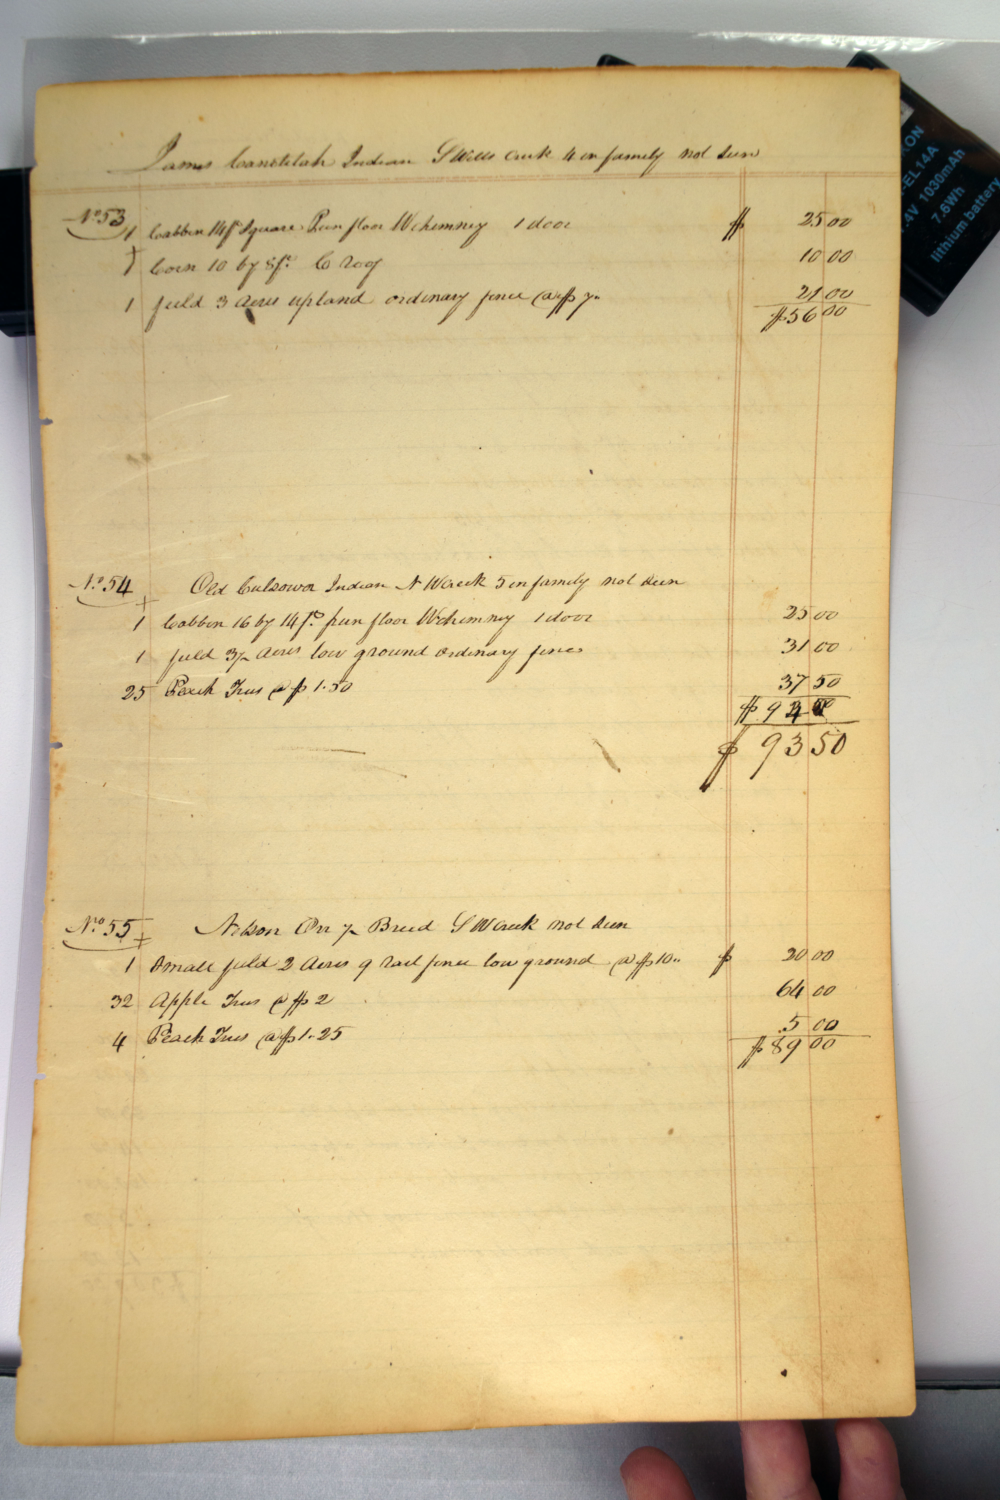 James Canetilah Indian S Wills Creek 4 in family not seen
No. 53
1 Cabben 14ft Square Pun floor W chimney 1 door $ 25 00
1 Corn 10 by 8ft C roof 10 00
1 field 3 Acres upland ordinary fence @ $7.. 21 00
$ 56 00
No. 54 Old Culsowa Indian N W Creek 5 in family not seen
1 Cabben 16 by 14ft pun floor W chimney 1 door 25 00
1 field Acres low ground ordinary fence 31 00
25 Peach Trees @ $ 1.50 37 50
$ 93 50
No. 55 Nelson Orr Breed S W Creek not seen
1 Small field 2 Acres 9 rail fence low ground @ $10.. $ 20 00
32 Apple Trees @ $2 64 00
4 Peach Trees @ $1.25 5 00
$ 89 00
ION
-EL14A
.4V 1030mAh
7.6Wh
lithium battery